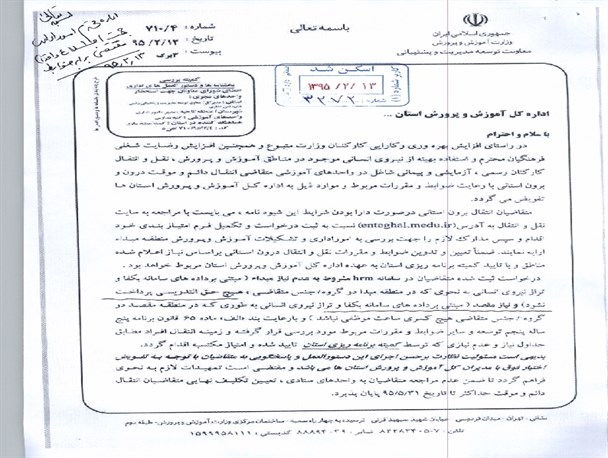 باسمه تعالی
جمهوری اسلامی ایران
وزارت آموزش و پرورش
معاونت توسعه مدیریت و پشتیبانی
شماره : ۷۱۰/۴
تاریخ : ۹۵/۲/۱۲
پیوست :
اسکن شد
۱۳۹۵/۲/۱۳
اداره کل آموزش و پرورش استان ...
با سلام و احترام
در راستای افزایش بهره وری وکارایی کارکنان وزارت متبوع و همچنین افزایش رضایت شغلی
فرهنگیان محترم و استفاده بهینه از نیروی انسانی موجود در مناطق آموزش و پرورش ، نقل و انتقال
کارکنان رسمی ، آزمایشی و پیمانی شاغل در واحدهای آموزشی متقاضی انتقال دائم و موقت درون و
برون استانی با رعایت ضوابط و مقررات مربوط و موارد ذیل به اداره کل آموزش و پرورش استان ها
تفویض می گردد.
متقاضیان انتقال برون استانی درصورت دارا بودن شرایط این شیوه نامه ، می بایست با مراجعه به سایت
نقل و انتقال به آدرس (enteghal.medu.ir) نسبت به ثبت درخواست و تکمیل فرم امتیاز بندی خود
اقدام و سپس مدارک لازم را جهت بررسی به امور اداری و تشکیلات آموزش و پرورش منطقه مبداء
ارایه نمایند. ضمناً تعیین و تدوین ضوابط و مقررات نقل و انتقال درون استانی براساس نیاز اعلام شده
مناطق و با تایید کمیته برنامه ریزی استان به عهده اداره کل آموزش و پرورش استان مربوط خواهد بود .
درخواست ثبت شده متقاضیان در سامانه hrm مشروط به عدم نیاز مبداء ( مبتنی برداده های سامانه یکفا و
تراز نیروی انسانی به نحوی که در منطقه مبدا در گروه/جنس متقاضی ، هیچ حق التدریسی پرداخت
نشود) و نیاز مقصد ( مبتنی برداده های سامانه یکفا و تراز نیروی انسانی به طوری که در منطقه مقصد در
گروه /جنس متقاضی هیچ کسری ساعت موظفی نباشد ) و بارعایت بند «الف» ماده ۶۵ قانون برنامه پنج
ساله پنجم توسعه و سایر ضوابط و مقررات مورد بررسی قرار گرفته و زمینه انتقال افراد مطابق
جداول نیاز و عدم نیازی که توسط کمیته برنامه ریزی استان تایید شده و امتیاز مکتسبه اقدام گردد.
بدیهی است مسئولیت نظارت برحسن اجرای این دستورالعمل و پاسخگویی به متقاضیان با توجه به تفویض
اختیار فوق با مدیران کل آموزش و پرورش استان ها می باشد و مقتضی است تمهیدات لازم به نحوی
فراهم گردد تا ضمن عدم مراجعه متقاضیان به واحدهای ستادی ، تعیین تکلیف نهایی متقاضیان انتقال
دائم و موقت حداکثر تا تاریخ ۹۵/۵/۳۱ پایان پذیرد.